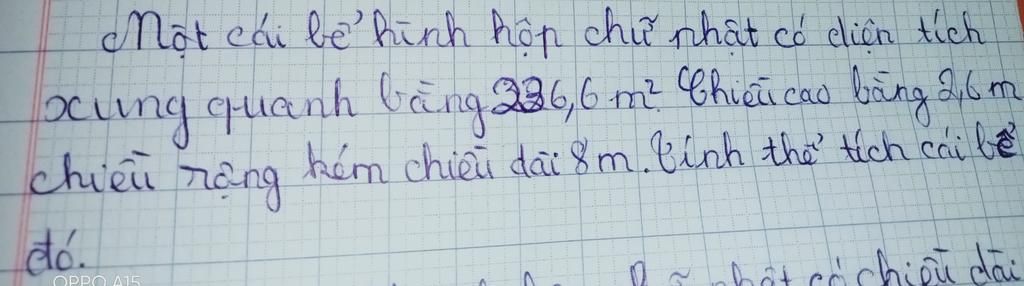 Một cái bể hình hộp chữ nhật có diện tích
xung quanh bằng 336,6 m². Chiều cao bằng 2,6 m
chiều rộng kém chiều dài 8 m. Tính thể tích cái bể
đó.
chiều dài
OPPO A15